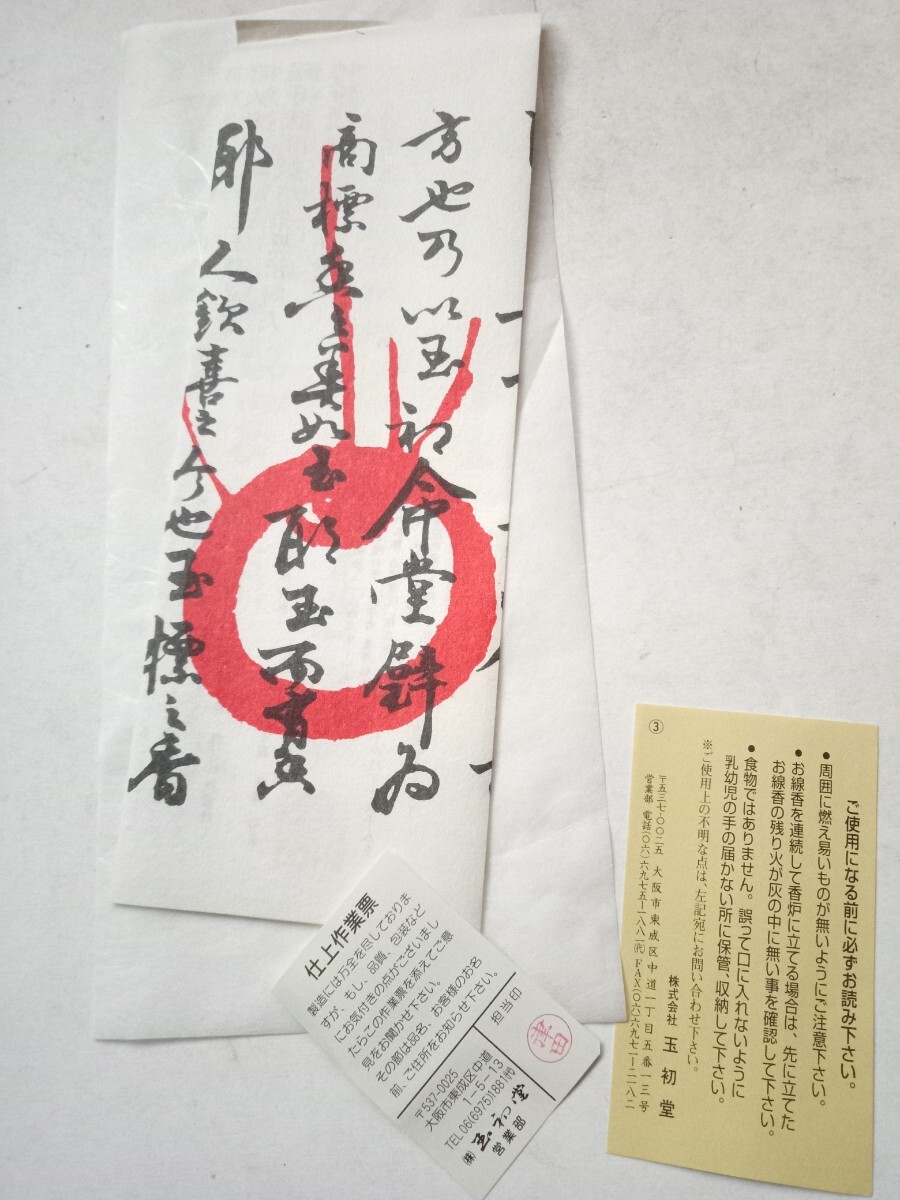 方也乃以玉初命堂辟為
商標玉而有
耶人欽喜之今也玉標之香
ご使用になる前に必ずお読み下さい。
●周囲に燃え易いものが無いようにご注意下さい。
●お線香を連続して香炉に立てる場合は、先に立てた
お線香の残り火が灰の中に無い事を確認して下さい。
●食物ではありません。誤って口に入れないように
乳幼児の手の届かない所に保管、収納して下さい。
※ご使用上の不明な点は、左記宛にお問い合わせ下さい。
株式会社 玉初堂
〒五三七-〇〇二五 大阪市東成区中道一丁目五番一三号
営業部 電話(〇六)六九七五-一八八一㈹ FAX(〇六)六九七一-二二八二
③
仕上作業票
製造には万全を尽しておりま
すが、もし、品質、包装など
にお気付きの点がございまし
たらこの作業票を添えてご意
見をお聞かせ下さい。
その節は品名、お客様のお名
前、ご住所をお知らせ下さい。
担当印
津田
〒537-0025
大阪市東成区中道
1-5-13
TEL 06(6975)1881㈹
㈱ 玉初堂
営業部